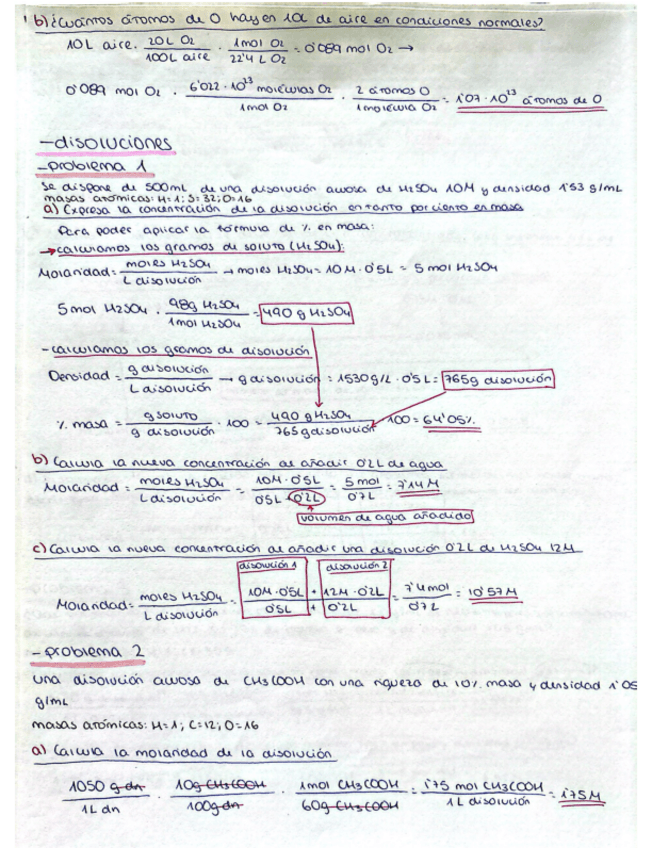 b) ¿Cuántos átomos de O hay en 10L de aire en condiciones normales?
10L aire · 20L O2 / 100L aire · 1mol O2 / 22'4 L O2 = 0'089 mol O2 →
0'089 mol O2 · 6'022·10^23 moléculas O2 / 1mol O2 · 2 átomos O / 1 molécula O2 = 1'07·10^23 átomos de O
-disoluciones
-problema 1
Se dispone de 500mL de una disolución acuosa de H2SO4 10M y densidad 1'53 g/mL
masas atómicas: H=1; S=32; O=16
a) Expresa la concentración de la disolución en tanto por ciento en masa
Para poder aplicar la fórmula de % en masa:
→ calculamos los gramos de soluto (H2SO4):
Molaridad = moles H2SO4 / L disolución → moles H2SO4 = 10M · 0'5L = 5 mol H2SO4
5 mol H2SO4 · 98g H2SO4 / 1mol H2SO4 = 490 g H2SO4
- calculamos los gramos de disolución
Densidad = g disolución / L disolución → g disolución = 1530g/L · 0'5L = 765g disolución
% masa = g soluto / g disolución · 100 = 490 g H2SO4 / 765 g disolución · 100 = 64'05%
b) Calcula la nueva concentración al añadir 0'2L de agua
Molaridad = moles H2SO4 / L disolución = 10M · 0'5L / 0'5L + 0'2L = 5 mol / 0'7L = 7'14 M
volumen de agua añadido
c) Calcula la nueva concentración al añadir una disolución 0'2L de H2SO4 12M
disolución 1 disolución 2
Molaridad = moles H2SO4 / L disolución = 10M · 0'5L + 12M · 0'2L / 0'5L + 0'2L = 7'4mol / 0'7L = 10'57 M
- problema 2
Una disolución acuosa de CH3COOH con una riqueza de 10% masa y densidad 1'05
g/mL
masas atómicas: H=1; C=12; O=16
a) Calcula la molaridad de la disolución
1050 g dn / 1L dn · 10g CH3COOH / 100g dn · 1mol CH3COOH / 60g CH3COOH = 1'75 mol CH3COOH / 1L disolución = 1'75 M